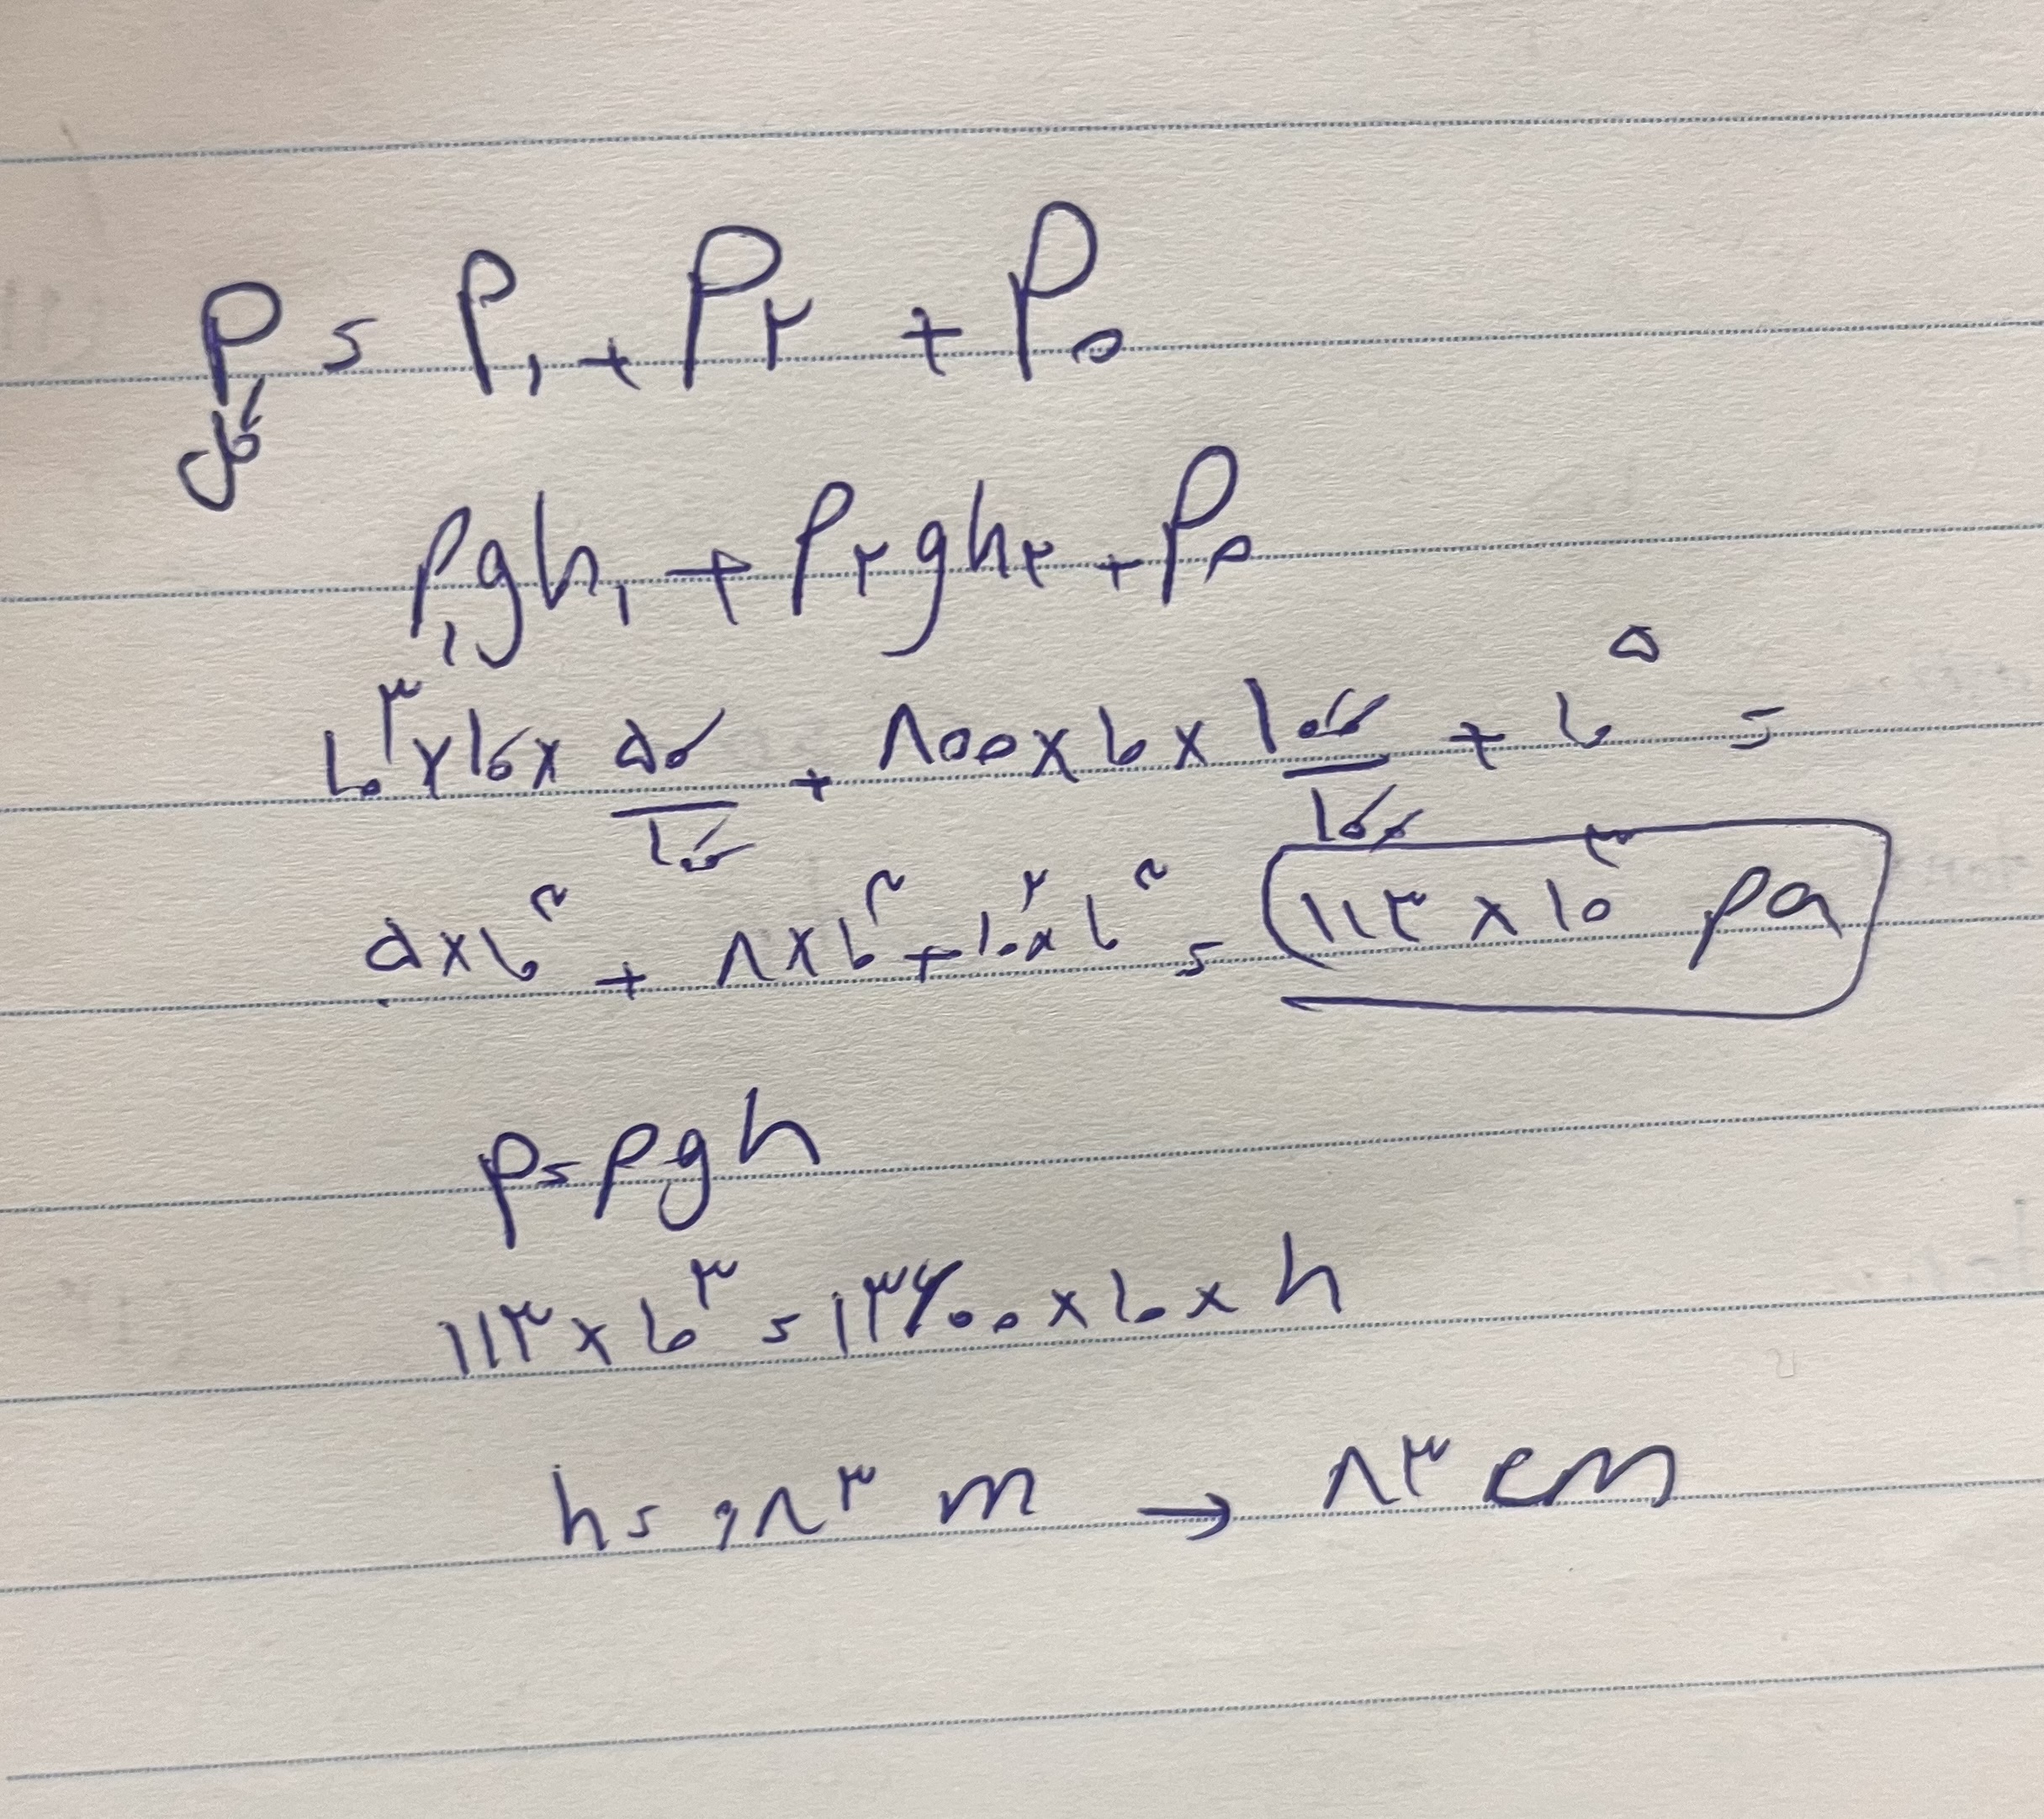 P کل = P۱ + P۲ + P۰
ρ۱gh۱ + ρ۲gh۲ + P۰
۱۰^۳ × ۱۰ × ۵۰/۱۰۰ + ۸۰۰ × ۱۰ × ۱۰۰/۱۰۰ + ۱۰^۵ =
۵×۱۰^۳ + ۸×۱۰^۳ + ۱۰^۲×۱۰^۳ = ۱۱۳ × ۱۰^۳ pa
P = ρgh
۱۱۳ × ۱۰^۳ = ۱۳۶۰۰ × ۱۰ × h
h = ,۸۳ m → ۸۳ cm